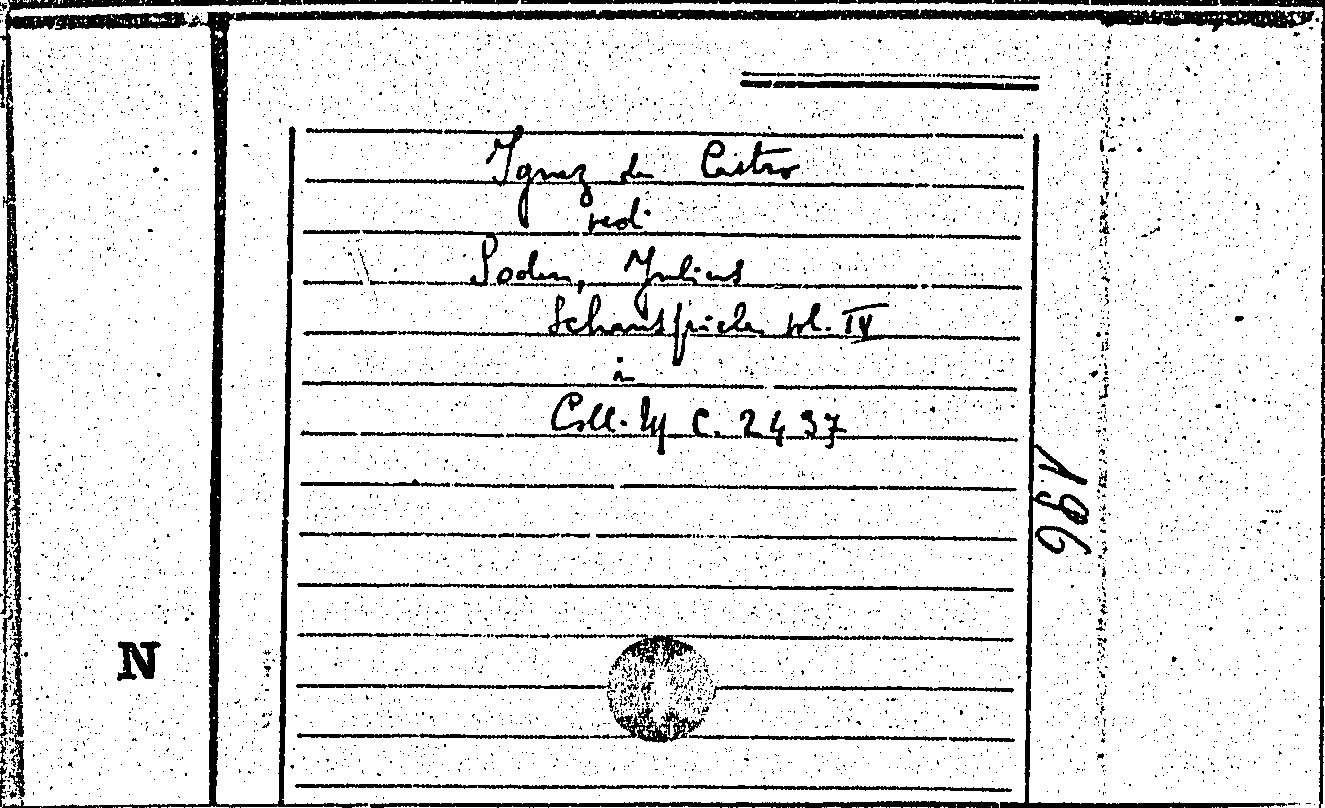 Ignez de Castro
vedi
Soden, Julius
Schauspiele vol. IV
in
Coll. C. 2437
196
N